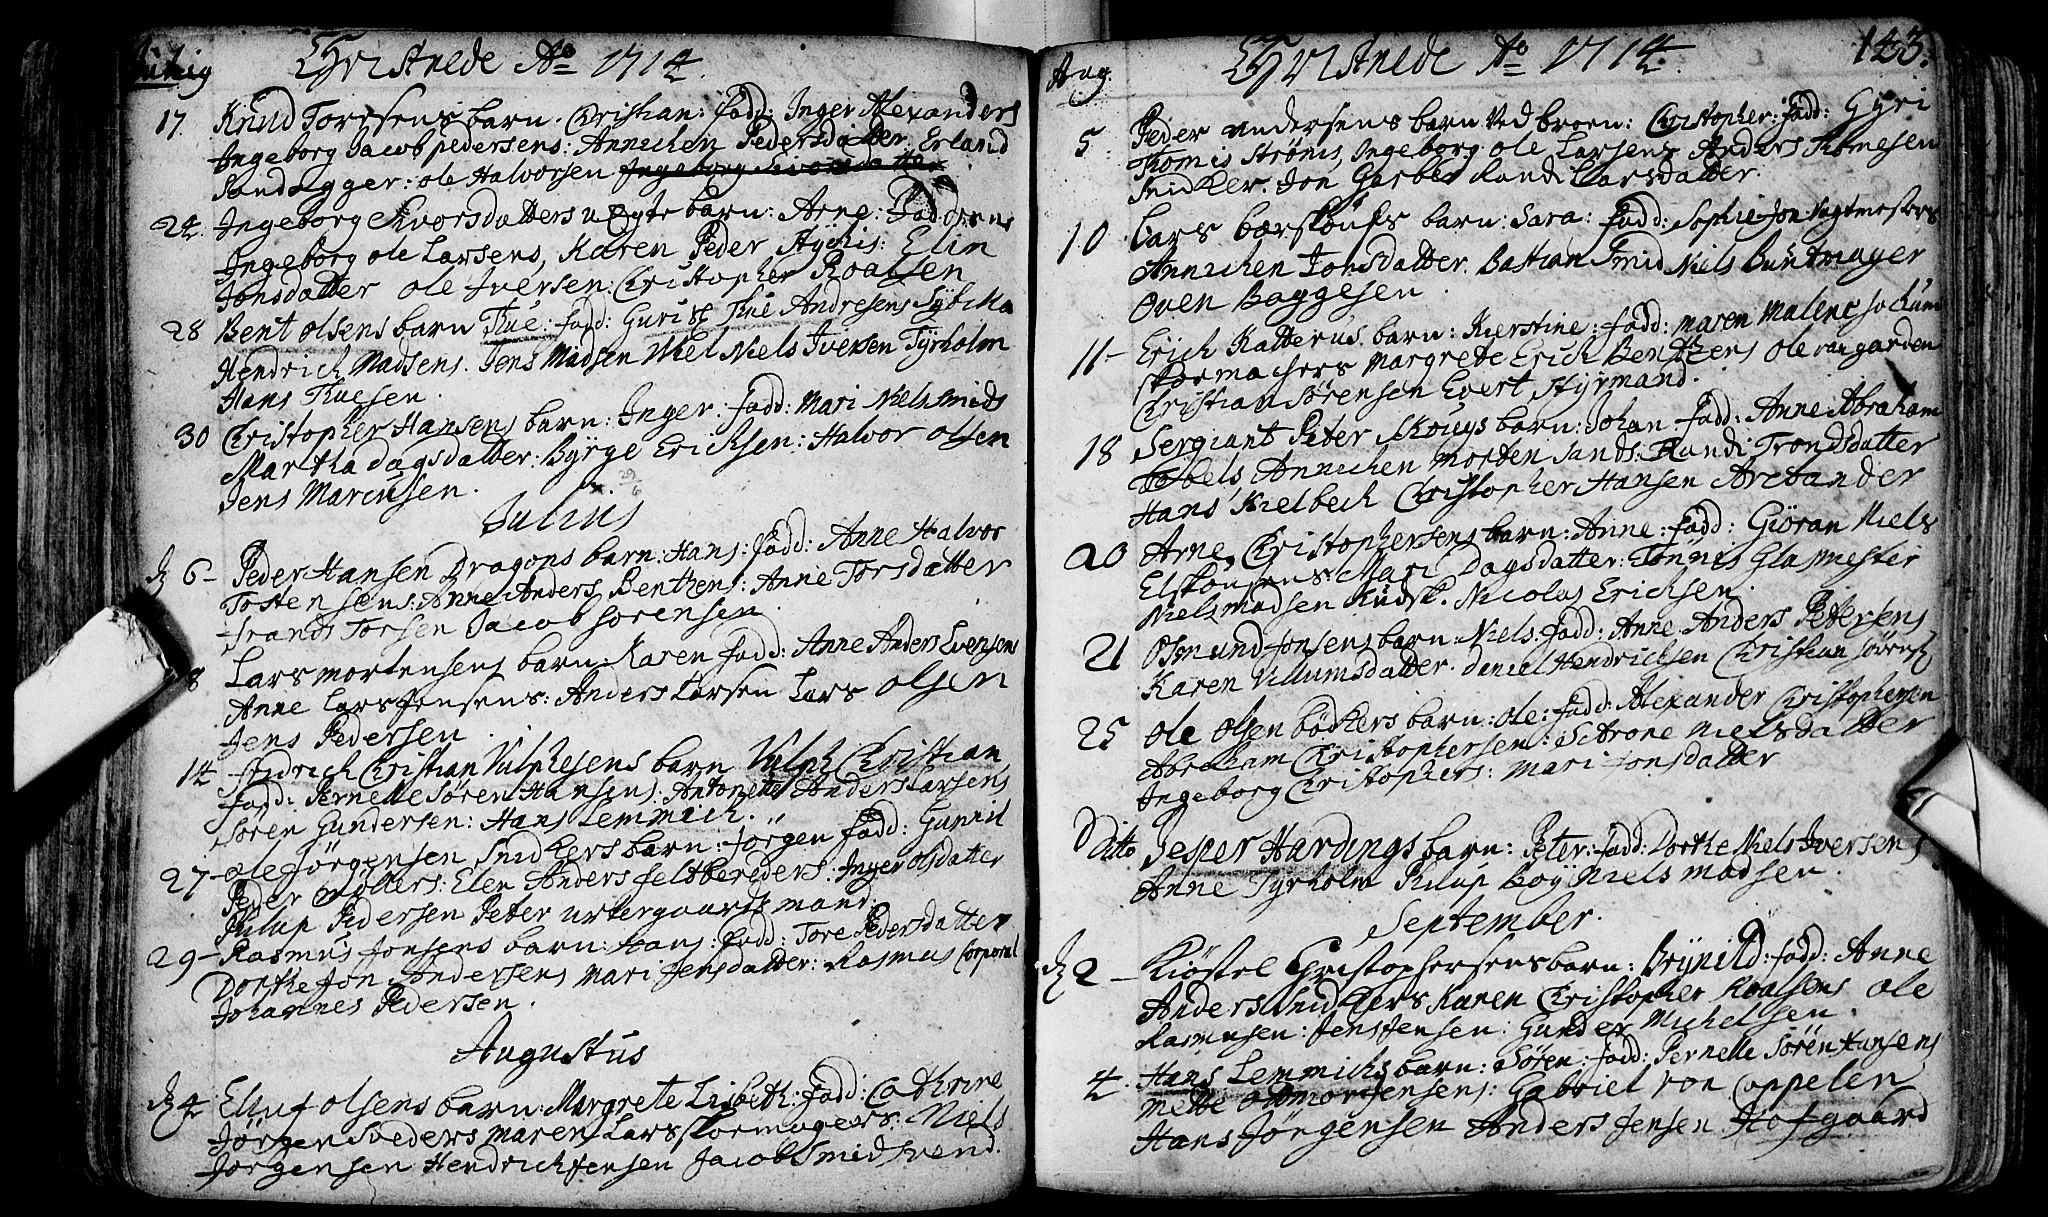 Christnede Ao 1714.
17. Knud Toresens barn. Christian: fadd: Inger Alexanders
Ingeborg Jacob pedersens: Annichen Pedersdatter. Erland
Sandagger: ole Halvorsen Ingeborg Sivorsdatter
24. Ingeborg Sivorsdatters uægte barn: Arne: Fadderne
Ingeborg ole Larsens, Karen Peder Styhis: Elin
Jonsdatter ole Iversen: Christopher Roalsen
28 Bent olsens barn Thue: fadd: Guri Thue Andresens Sybilla
Hendrich Madsens. Jens Madsen Niels Iversen Tyrholm
Hans Thuesen.
30 Christopher Hansens barn: Inger: fadd: Mari Niels smids
Martha dagsdatter: Byrge Erichsen: Halvor olsen
Jens Marcussen.
29/6
Julius
d 6 - Peder Hansen Dragons barn: Hans: fadd: Anne Halvor
Tostensens: Anne Anders Benthens: Anne Torsdatter
frands Torsen Jacob sorensen.
8 Lars mortensens barn: Karen fadd: Anne Anders Evensens
Anne Lars Jensens: Anders Larsen Lars olsen
Jens Pedersen.
14 - fridrich Christian Vulphesens barn Vulph Christian
fadd: Pernelle Søren Hansens: Antonette Anders Larsens
Søren Gundersen: Hans Lemmich.
27 - ole Jørgensen Snidkers barn: Jørgen fadd: Gunild
Peder Møllers: Elen Anders feltbereders: Inger olsdatter
Philup Pedersen Peter urtegaardsmand.
29 - Rasmus Jonsens barn: Hans: fadd: Tore Pedersdatter
Dorthe Jon Andersens Mari Jensdatter: Rasmus Corporal
Johannes Pedersen.
Augustus
d 4 Elluf olsens barn: Margrete Lisbeth: fadd: Cathrine
Jørgen Sveders maren Lars skomagers: Niels
Jørgensen Hendrich Jensen Jacob Smidsvend.
Aug. Christnede Ao 1714. 143.
5 Peder Andersens barn ved broen: Christopher: fadd: Gyri
Thomis Strøms, Ingeborg ole Larsens Anders Thomesen
snicker. Jon Garber Randi Larsdatter.
10 Lars bærskoufs barn: Sara: fadd: Sophie Jon Vagtmesters
Annichen Jonsdatter. Bastian Smid Niels Buntmager
Oven Baggesen.
11 - Erich Katterus barn: Kierstine: fadd: maren Malene
skormachers Margrete Erich Benthens ole van garden
Christian Sørensen Evert Styrmand.
18 Sergiant Peter Skouys barn: Johan fadd: Anne Abraham
Annichen morten Sands: Randi Trondsdatter
Hans Kielbech Christopher Hansen Arebander
20 Arne Christophersens barn: Anne: fadd: Giøran Niels
Mari Dagsdatter: Tønnes Glasmester
Niels madsen Kudsk. Nicolas Erichsen.
21 Osmund Jonsens barn: Niels: fadd: Anne Anders Petersens
Karen Villumsdatter. daniel Hendrichsen Christian sørens
25 ole olsen bødkers barn: ole: fadd: Alexander Christophersen
Abraham Christophersen: Nielsdatter
Ingeborg Christophers: Mari Jonsdatter
Ditto Jesper Hardings barn: Peter: fadd: Dorthe Niels Iversens
Anne Tyrholm Philup Boy Niels madsen.
September.
d 2 - Kiøstel Christophersens barn: Brynild: fadd: Anne
Anders snidkers Karen Christopher Roalsens ole
Rasmusen: Jens Jensen: Gunder Michelsen.
4. Hans Lemmichs barn: Søren: fadd: Pernelle Søren Hansens
Mette mortensens: Gabriel von Cappelen
Hans Jørgensen Anders Jensen Hofgaard